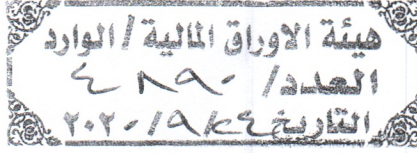 هيئة الاوراق المالية / الوارد
العدد/ ٤٨٩٠
التاريخ ٢٠٢٠/٩/٢٤